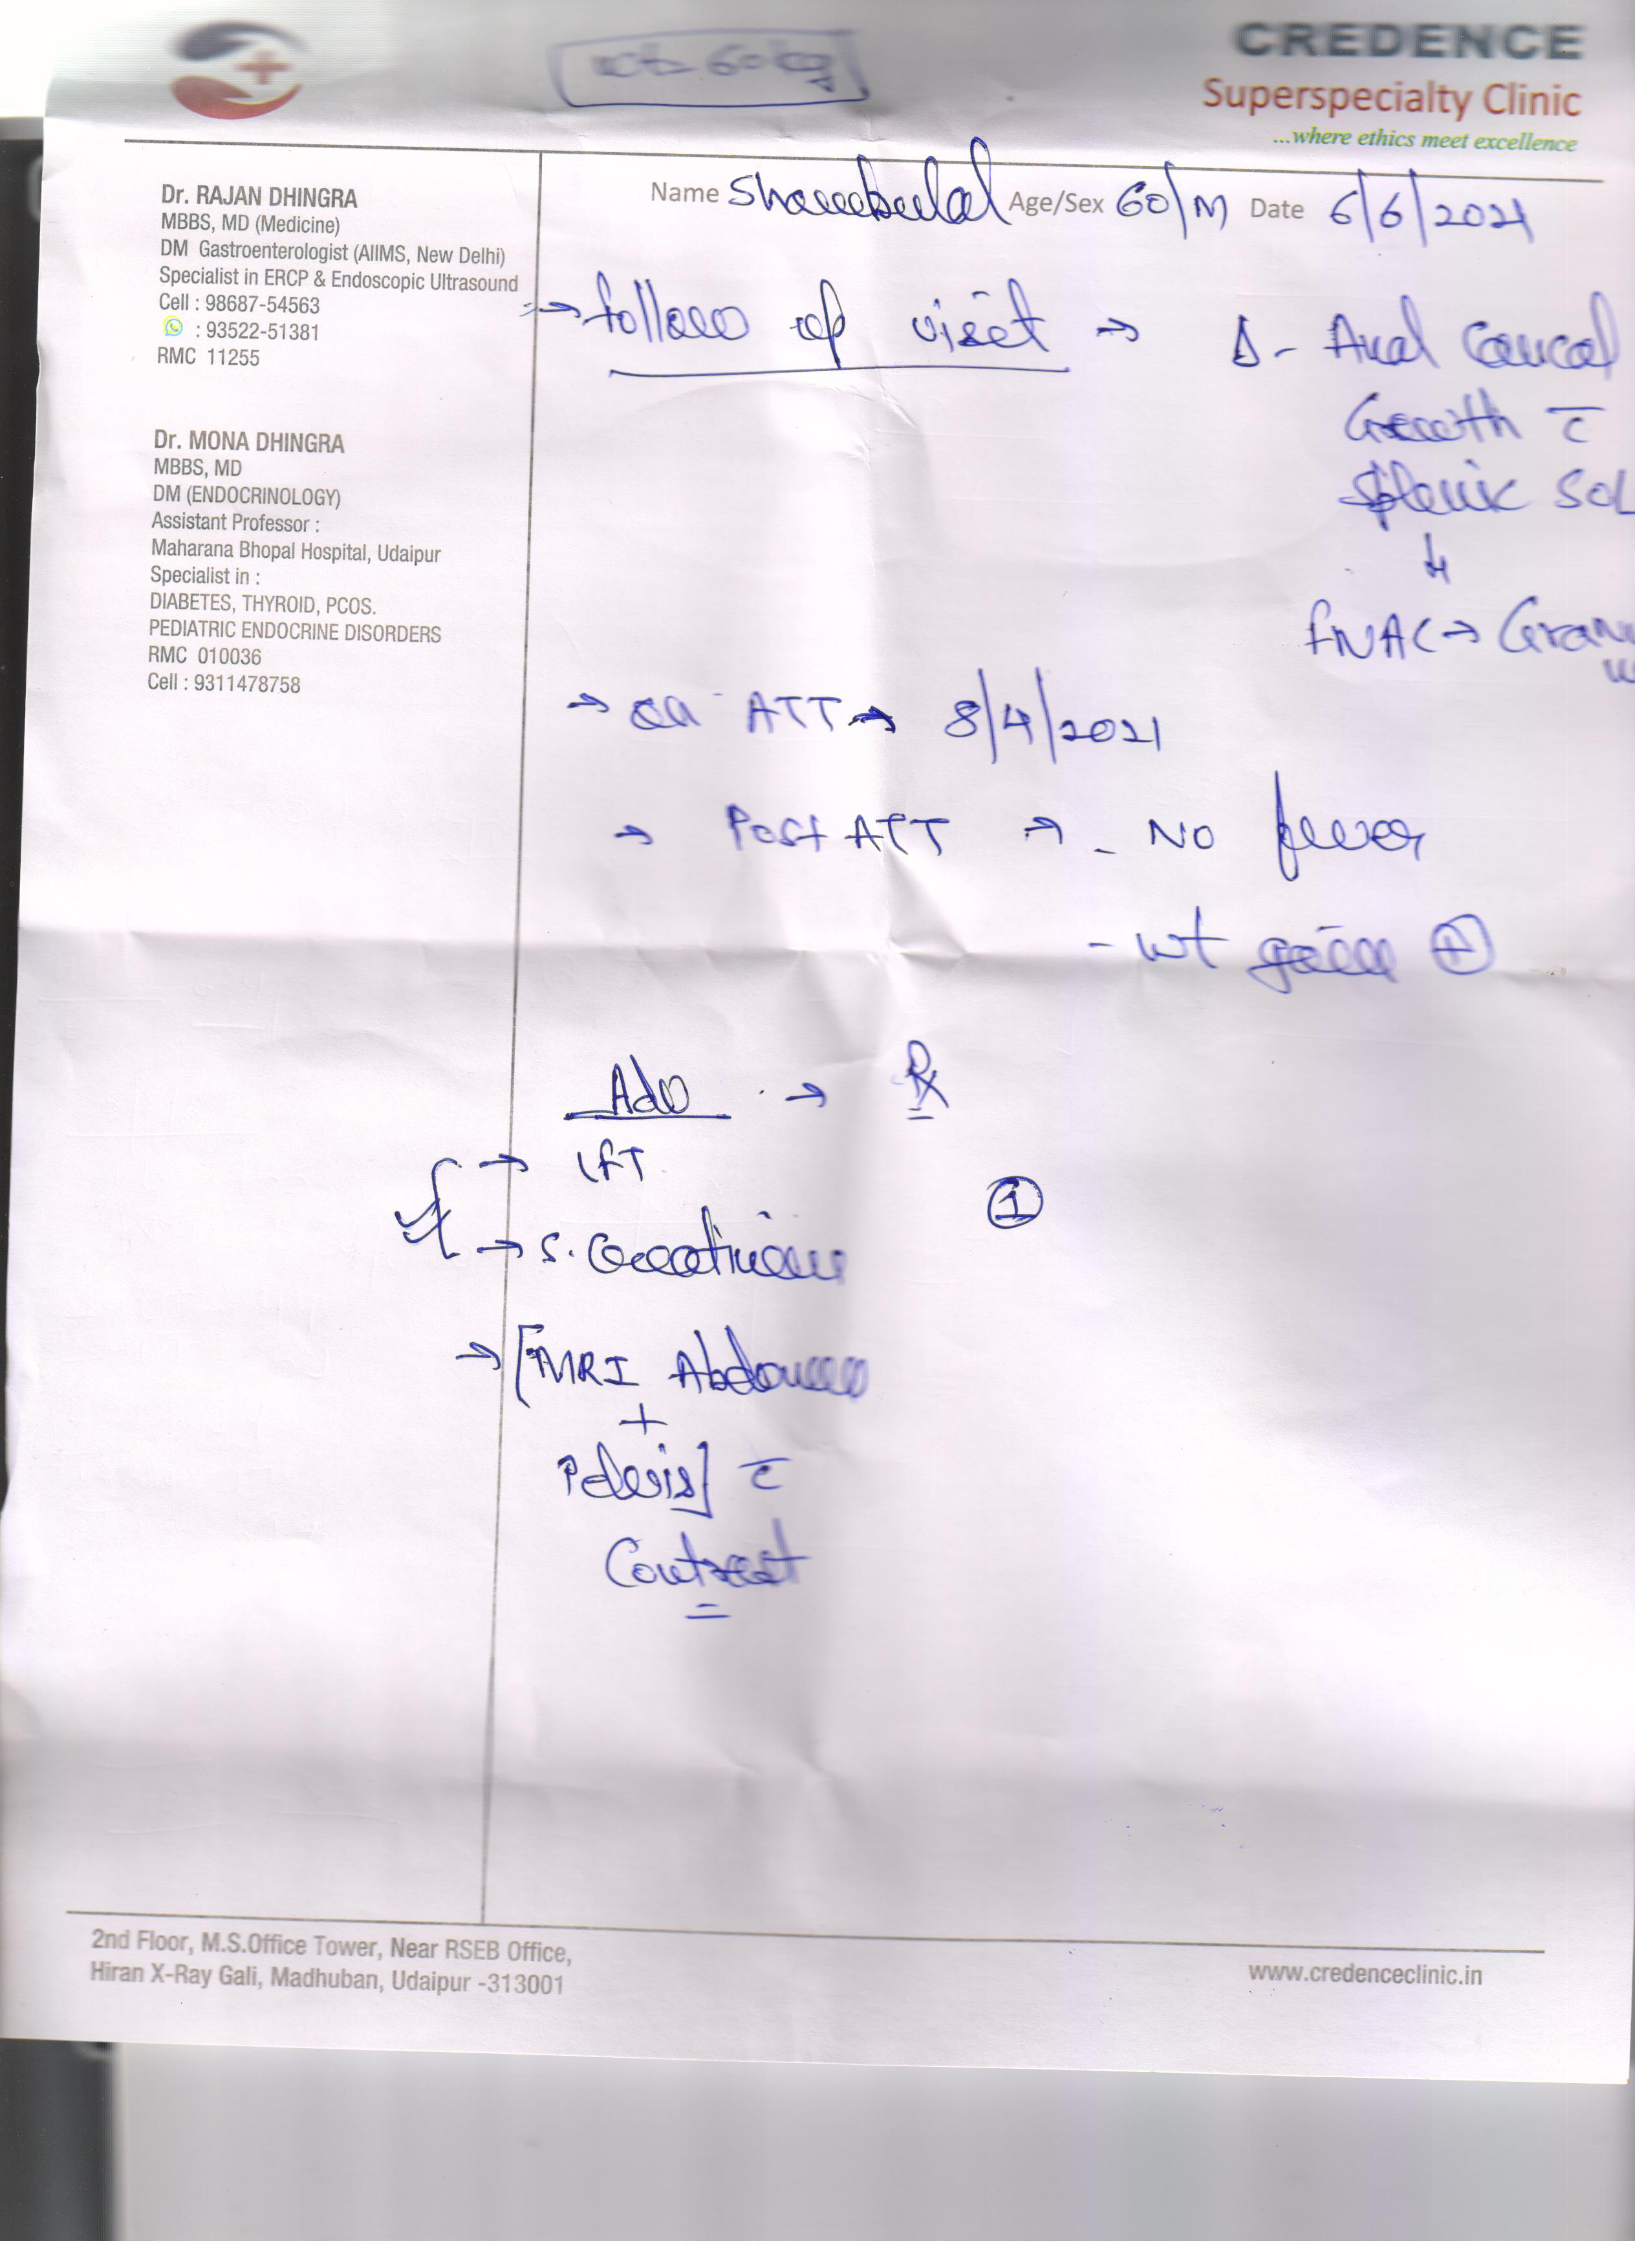 wt- 60 kg
CREDENCE
Superspecialty Clinic
...where ethics meet excellence
Dr. RAJAN DHINGRA
MBBS, MD (Medicine)
DM Gastroenterologist (AIIMS, New Delhi)
Specialist in ERCP & Endoscopic Ultrasound
Cell : 98687-54563
: 93522-51381
RMC 11255
Dr. MONA DHINGRA
MBBS, MD
DM (ENDOCRINOLOGY)
Assistant Professor :
Maharana Bhopal Hospital, Udaipur
Specialist in :
DIABETES, THYROID, PCOS.
PEDIATRIC ENDOCRINE DISORDERS
RMC 010036
Cell : 9311478758
Name Shambulal Age/Sex 60/M Date 6/6/2021
→ follow up visit → Δ - Anal Canal
Growth c̄
Splenic SOL
↓
FNAC → Gran
→ on ATT → 8/4/2021
→ Post ATT → - No fever
- wt gain ⊕
Adv → Rx
→ LFT
①
→ S. Creatinine
→ [MRI Abdomen
+
Pelvis] c̄
Contrast
2nd Floor, M.S.Office Tower, Near RSEB Office,
Hiran X-Ray Gali, Madhuban, Udaipur -313001
www.credenceclinic.in